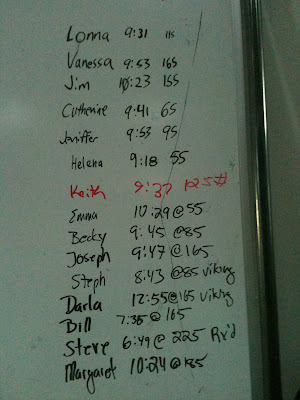 Lonna 9:31 115
Vanessa 9:53 165
Jim 10:23 155
Catherine 9:41 65
Jeniffer 9:53 95
Helena 9:18 55
Keith 9:37 125#
Emma 10:29@55
Becky 9:45@85
Joseph 9:47@165
Steph 8:43@85 Viking
Darla 12:55@165 Viking
Bill 7:36@165
Steve 6:49@225 Rx'd
Margaret 10:24@185